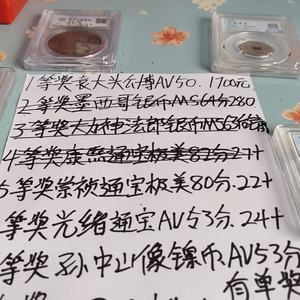 1等奖袁大头公博AV50.1700元
2等奖墨西哥银币MS64分280
3等奖大女神法郎银币MS63
4等奖康熙通宝极美82分2
5等奖崇祯通宝极美80分.22十
等奖光绪通宝AV53分.24十
等奖孙中山像镍币AV53分
有单奖